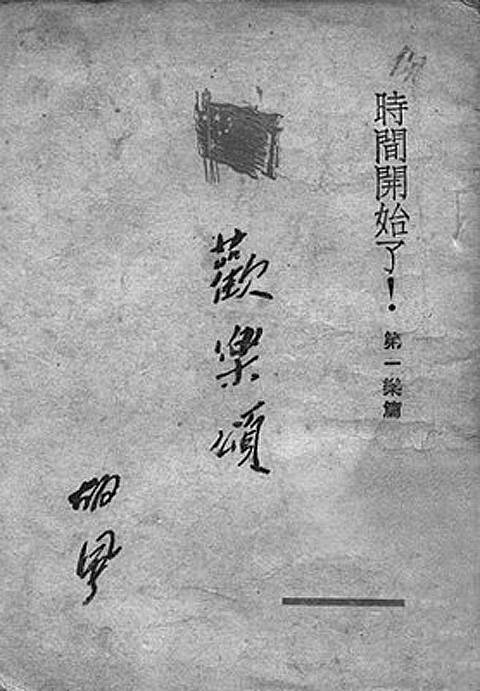 時間開始了！第一樂篇
歡樂頌
胡風